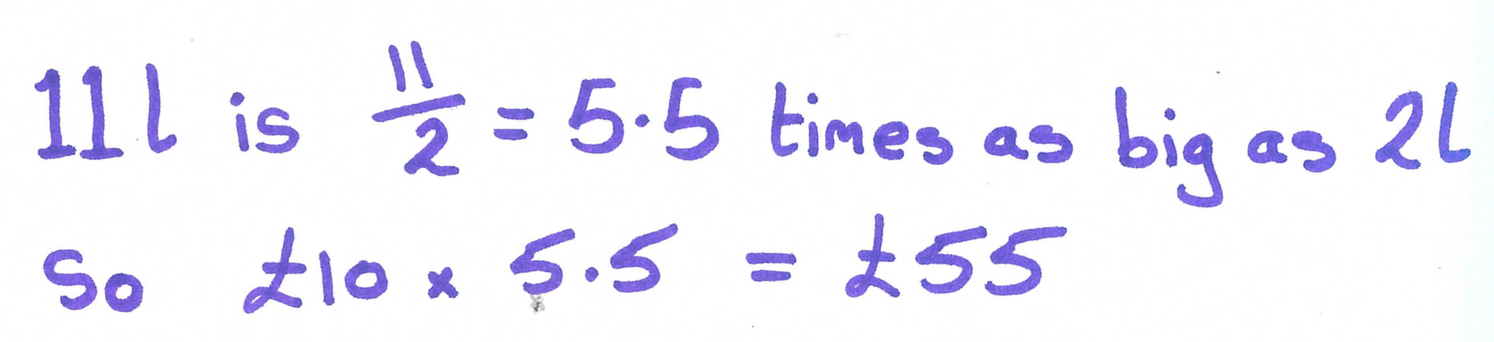 11l is 11/2 = 5.5 times as big as 2l
So £10 x 5.5 = £55